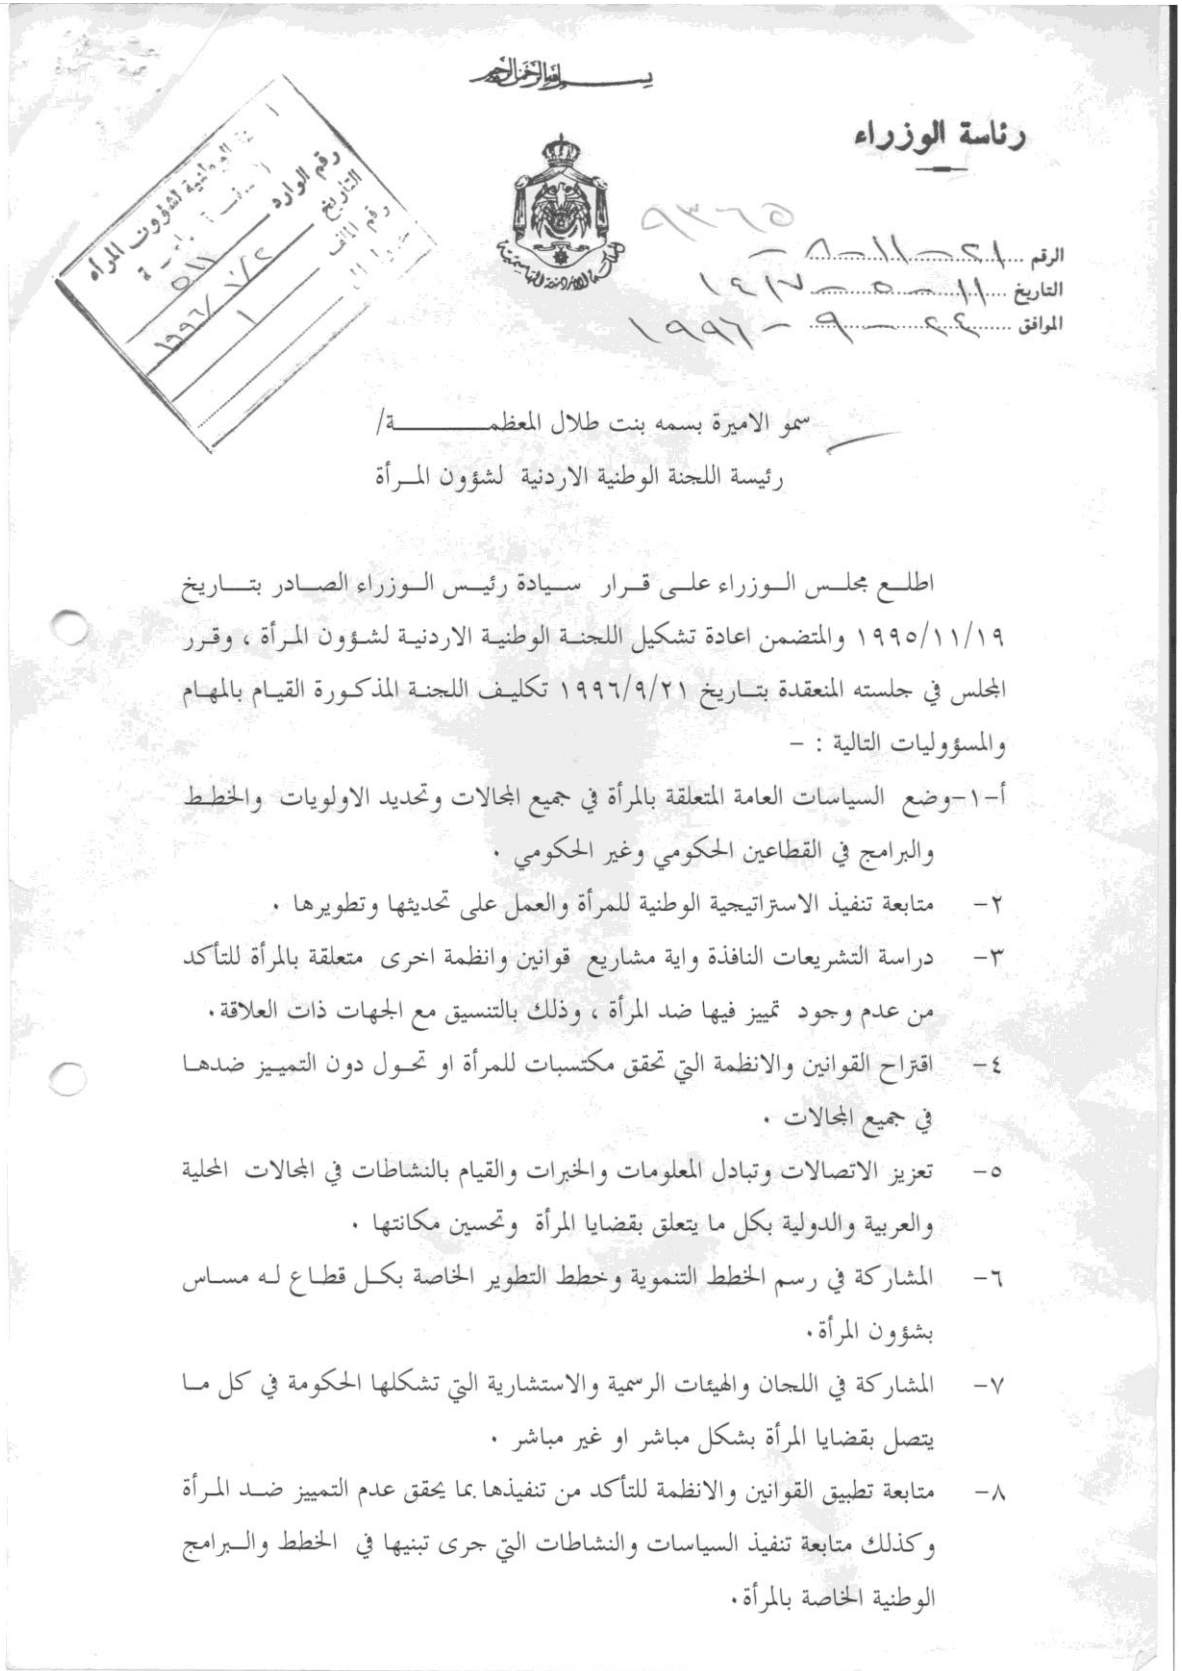 بسم الله الرحمن الرحيم
رئاسة الوزراء
المملكة الاردنية الهاشمية
٩٣٦٥
الرقم ٢١ - ١١ - ٨ -
التاريخ ١١ - ٥ - ١٤١٧
الموافق ٢٤ - ٩ - ١٩٩٦
الوطنية لشؤون المرأه
رقم الوارد ٥١١
التاريخ ١٩٩٦/١٠/٢
رقم الملف ١
سمو الاميرة بسمه بنت طلال المعظمــــــــة/
رئيسة اللجنة الوطنية الاردنية لشؤون المـرأة
اطلـع مجلـس الـوزراء علـى قـرار سـيادة رئيـس الـوزراء الصـادر بتـــاريخ
١٩٩٥/١١/١٩ والمتضمن اعادة تشكيل اللجنـة الوطنيـة الاردنيـة لشـؤون المـرأة ، وقـرر
المجلس في جلسته المنعقدة بتـاريخ ١٩٩٦/٩/٢١ تكليـف اللجنـة المذكـورة القيـام بالمهـام
والمسؤوليات التالية : -
أ-١-وضع السياسات العامة المتعلقة بالمرأة في جميع المجالات وتحديد الاولويات والخطـط
والبرامج في القطاعين الحكومي وغير الحكومي .
٢- متابعة تنفيذ الاستراتيجية الوطنية للمرأة والعمل على تحديثها وتطويرها .
٣- دراسة التشريعات النافذة واية مشاريع قوانين وانظمة اخرى متعلقة بالمرأة للتأكد
من عدم وجود تمييز فيها ضد المرأة ، وذلك بالتنسيق مع الجهات ذات العلاقة.
٤- اقتراح القوانين والانظمة التي تحقق مكتسبات للمرأة او تحـول دون التميـيز ضدهـا
في جميع المجالات .
٥- تعزيز الاتصالات وتبادل المعلومات والخبرات والقيام بالنشاطات في المجالات المحلية
والعربية والدولية بكل ما يتعلق بقضايا المرأة وتحسين مكانتها .
٦- المشاركة في رسم الخطط التنموية وخطط التطوير الخاصة بكـل قطـاع لـه مسـاس
بشؤون المرأة.
٧- المشاركة في اللجان والهيئات الرسمية والاستشارية التي تشكلها الحكومة في كل مـا
يتصل بقضايا المرأة بشكل مباشر او غير مباشر .
٨- متابعة تطبيق القوانين والانظمة للتأكد من تنفيذها بما يحقق عدم التمييز ضـد المـرأة
وكذلك متابعة تنفيذ السياسات والنشاطات التي جرى تبنيها في الخطط والـبرامج
الوطنية الخاصة بالمرأة.